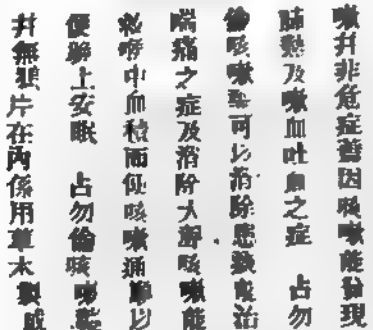 嗽並非危症蓋因咳嗽能發現
肺熱及嗽血吐血之症 占勿
倫咳嗽藥可以消除患數咳治
喘痛之症及消除大聲咳嗽能
救呀中血積而促咳嗽通難以
便夥上安眠 占勿倫咳嗽藥
並無鴉片在內係用草木製成